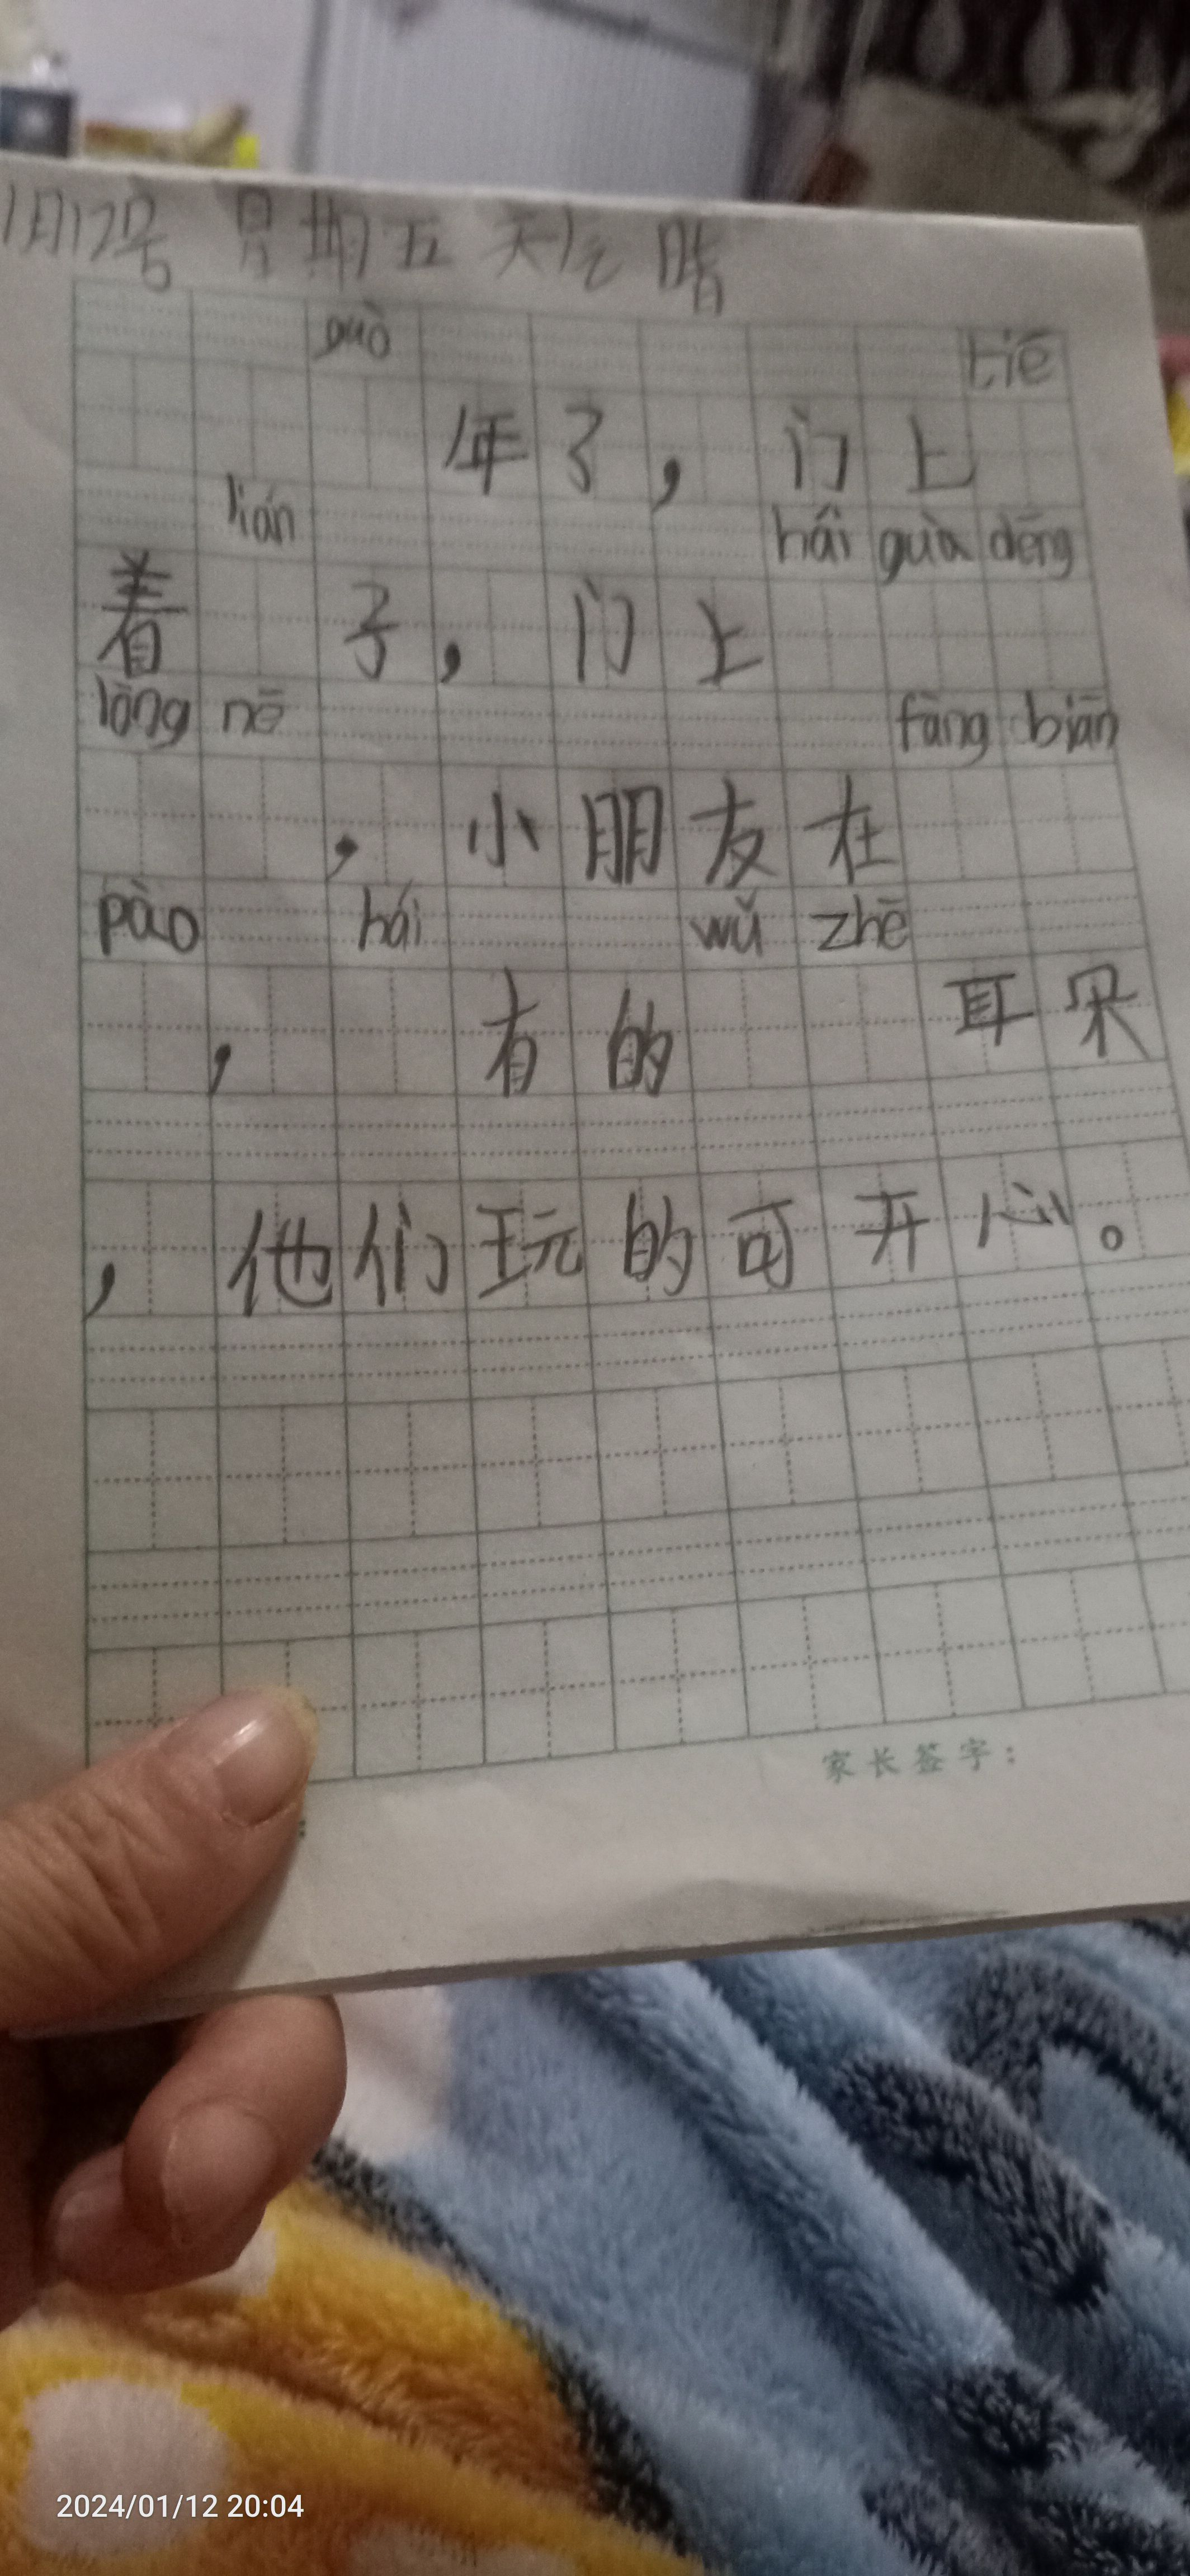 1月12号 星期五 天气 晴
guò 年了，门上 tiē
着 lián 子，门上 hái guà dēng
lóng nē，小朋友在 fàng biān
pào，hái 有的 wǔ zhē 耳朵
，他们玩的可开心。
家长签字：
2024/01/12 20:04